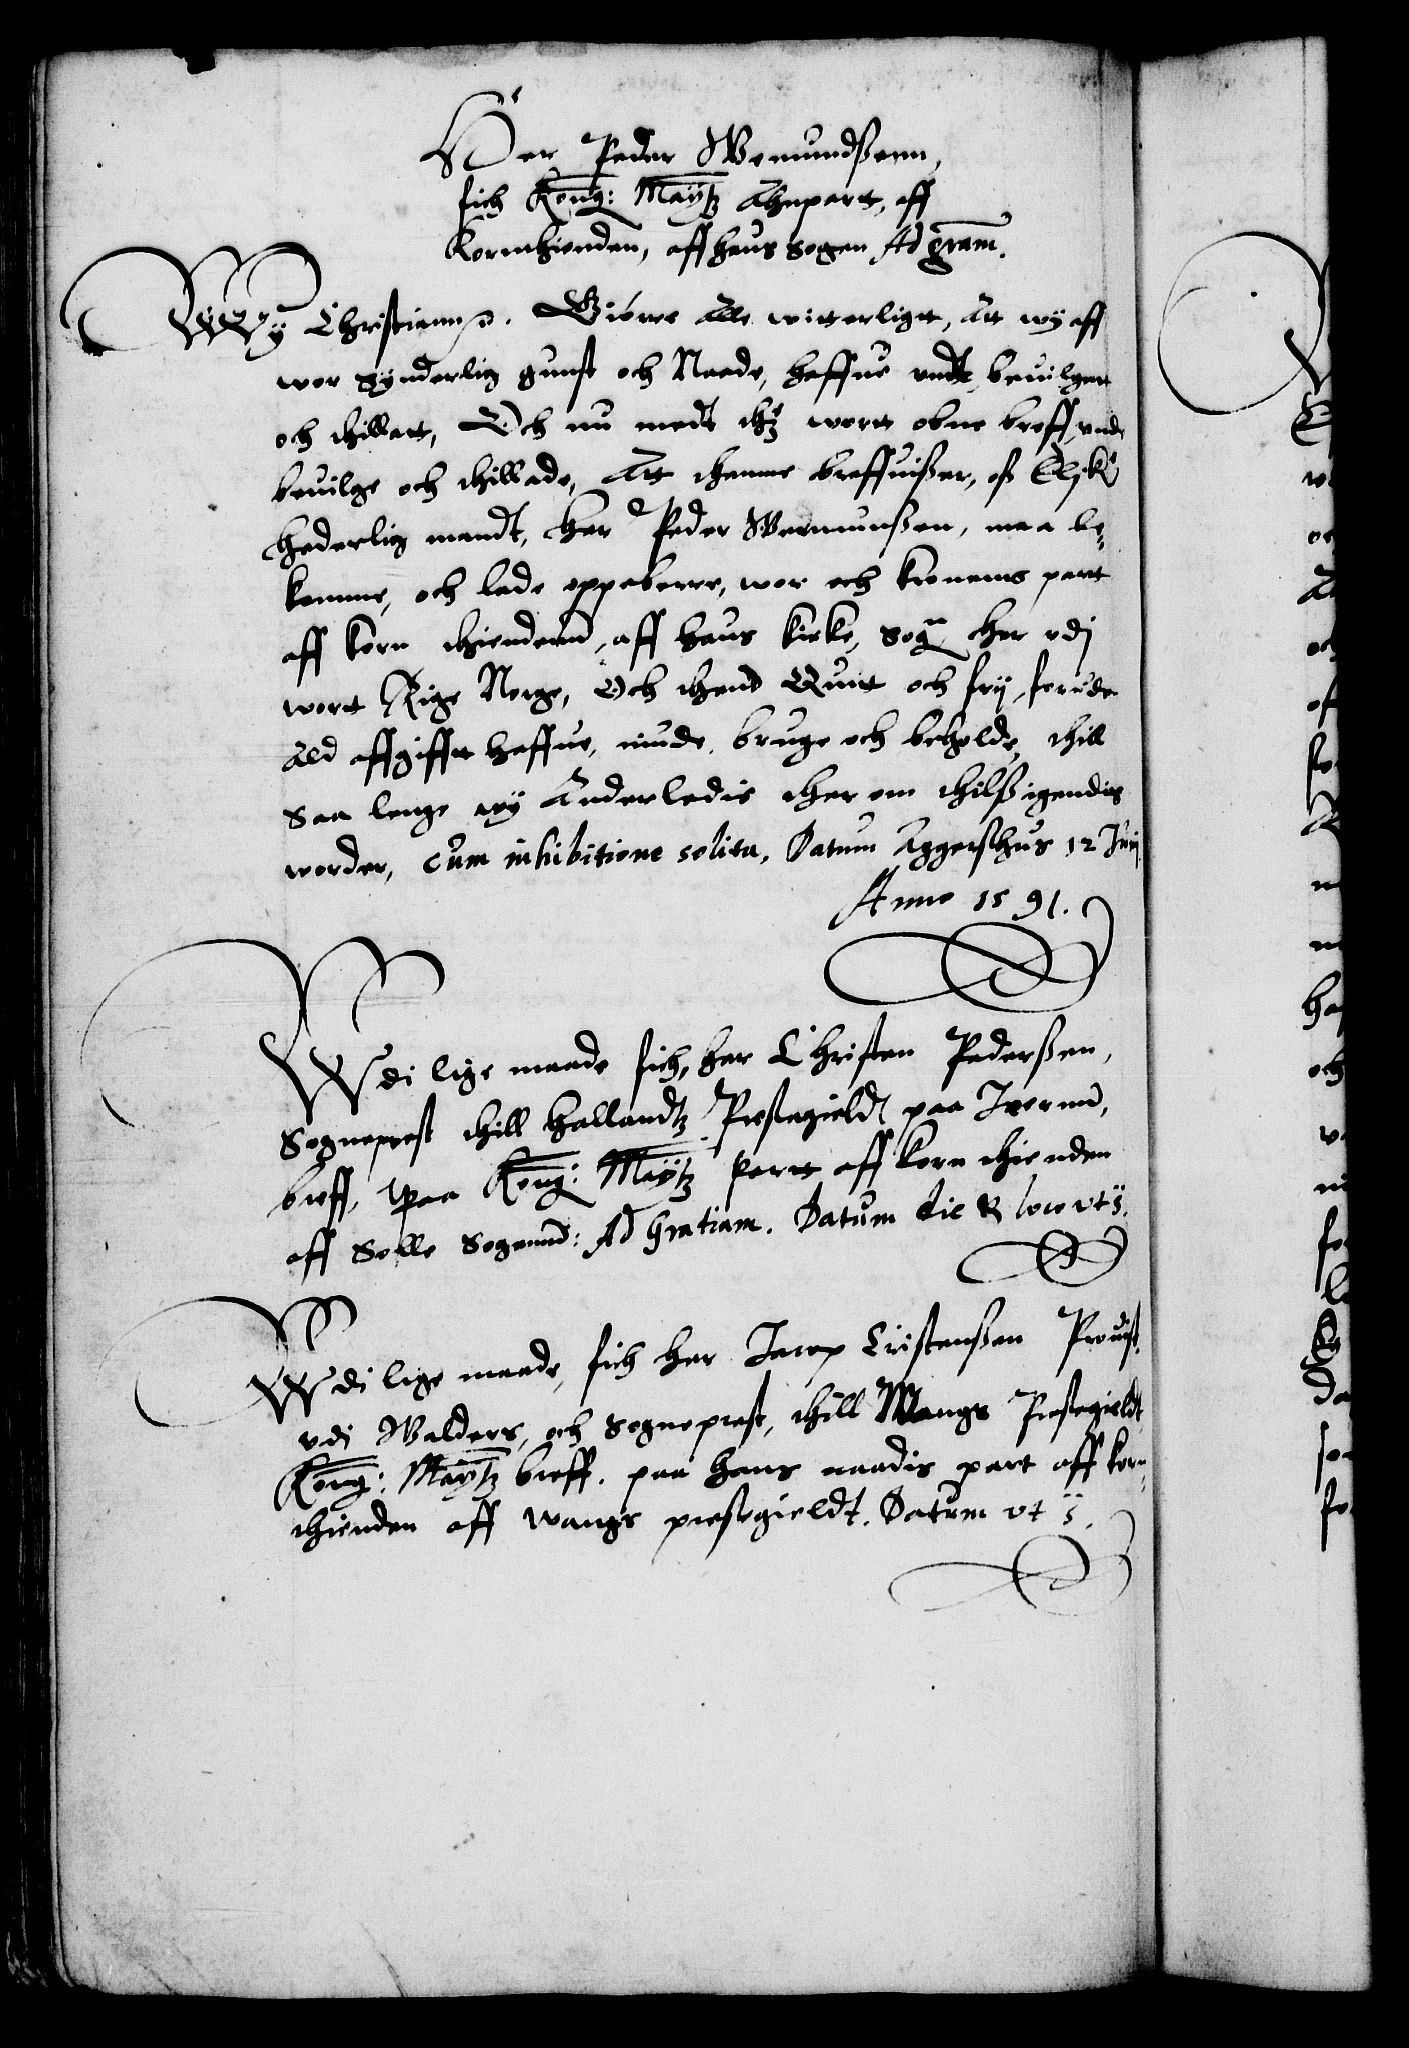 Her Peder Wemundßenn,
fich Konng: Maÿtz Anpart, aff
Kornthienden, aff Haus Sogen Ad gram.
Wy Christiann etc. Giörre Alle witterligt, Att wy aff
wor synderlig gunst och Naade, haffue undt, beuilgett
och thilladt, Och nu medt thz wortt obne breff, unde
beuilge och thillade, Att thenne breffuißer, oß Elske
hederlig mandt, her Peder Wermunßen, maa be„
komme, och lade oppeberre, wor och Kronens part
aff korn thiendenn, aff Haus kirke, Sogn her vdj
wort Rige Norge, Och thend Quit och frij, foruden
Ald affgifft haffue, niude, bruge och beholde, thill
saa lenge wy Anderledis ther om thilßigendis
worder, cum inhibitione solita, Datum Aggershus 12 Junij
Anno 1591.
Wdi lige maade fich, her Christen Pederßen,
Sogneprest thill Hallandtz Prestegieldt paa Jeerenn,
breff, Paa Konng: Maÿtz Partt aff korn thienden
aff Solle Sogennd: Ad Gratiam. Datum die & loco ut s.
Wdi lige maade, fich her Jacop Cristenßen Prouist
vdj Walders, och Sogneprest, thill Wangs Prestegieldt,
Konng: Maÿtz breff. paa hans naadis part aff korn
thienden aff Wangs prestegieldt. Datum ut s.